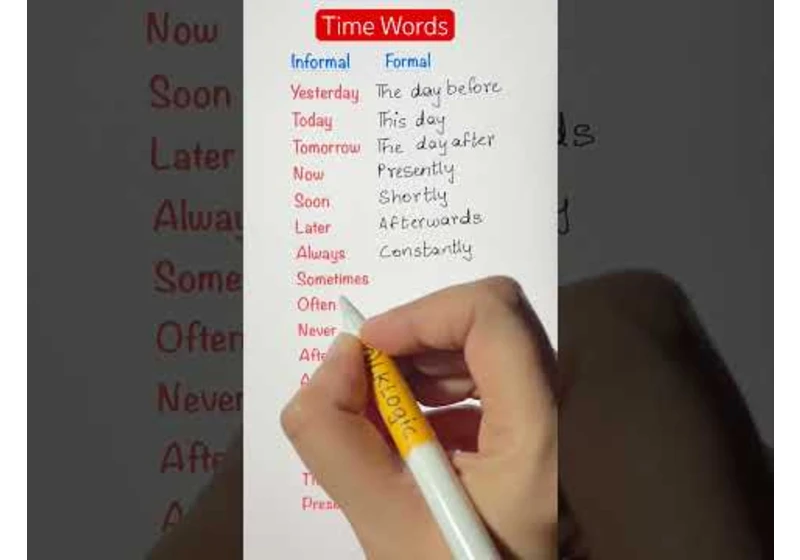 Time Words
Informal Formal
Yesterday The day before
Today This day
Tomorrow The day after
Now Presently
Soon Shortly
Later Afterwards
Always Constantly
Sometimes
Often
Never